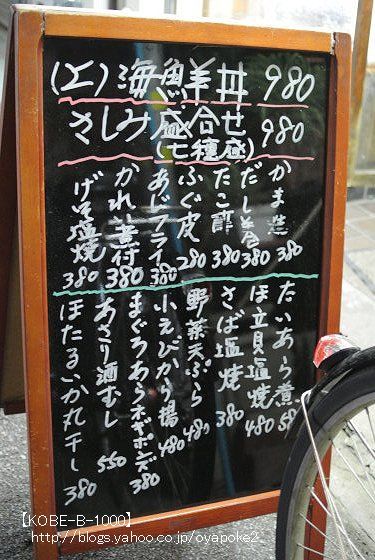 (上)海鮮丼 980
さしみ盛合せ 980
(七種盛)
かま塩 380
だし巻 380
たこ酢 380
ふぐ皮 280
あじフライ 380
かれい煮付 380
げそ塩焼 380
たいあら煮 580
ほ立貝塩焼 480
さば塩焼 380
野菜天ぷら 480
小えびから揚 480
まぐろあらネギポンズ 380
あさり酒むし 550
ほたるいか丸干し 380
【KOBE-B-1000】
http://blogs.yahoo.co.jp/oyapoke2